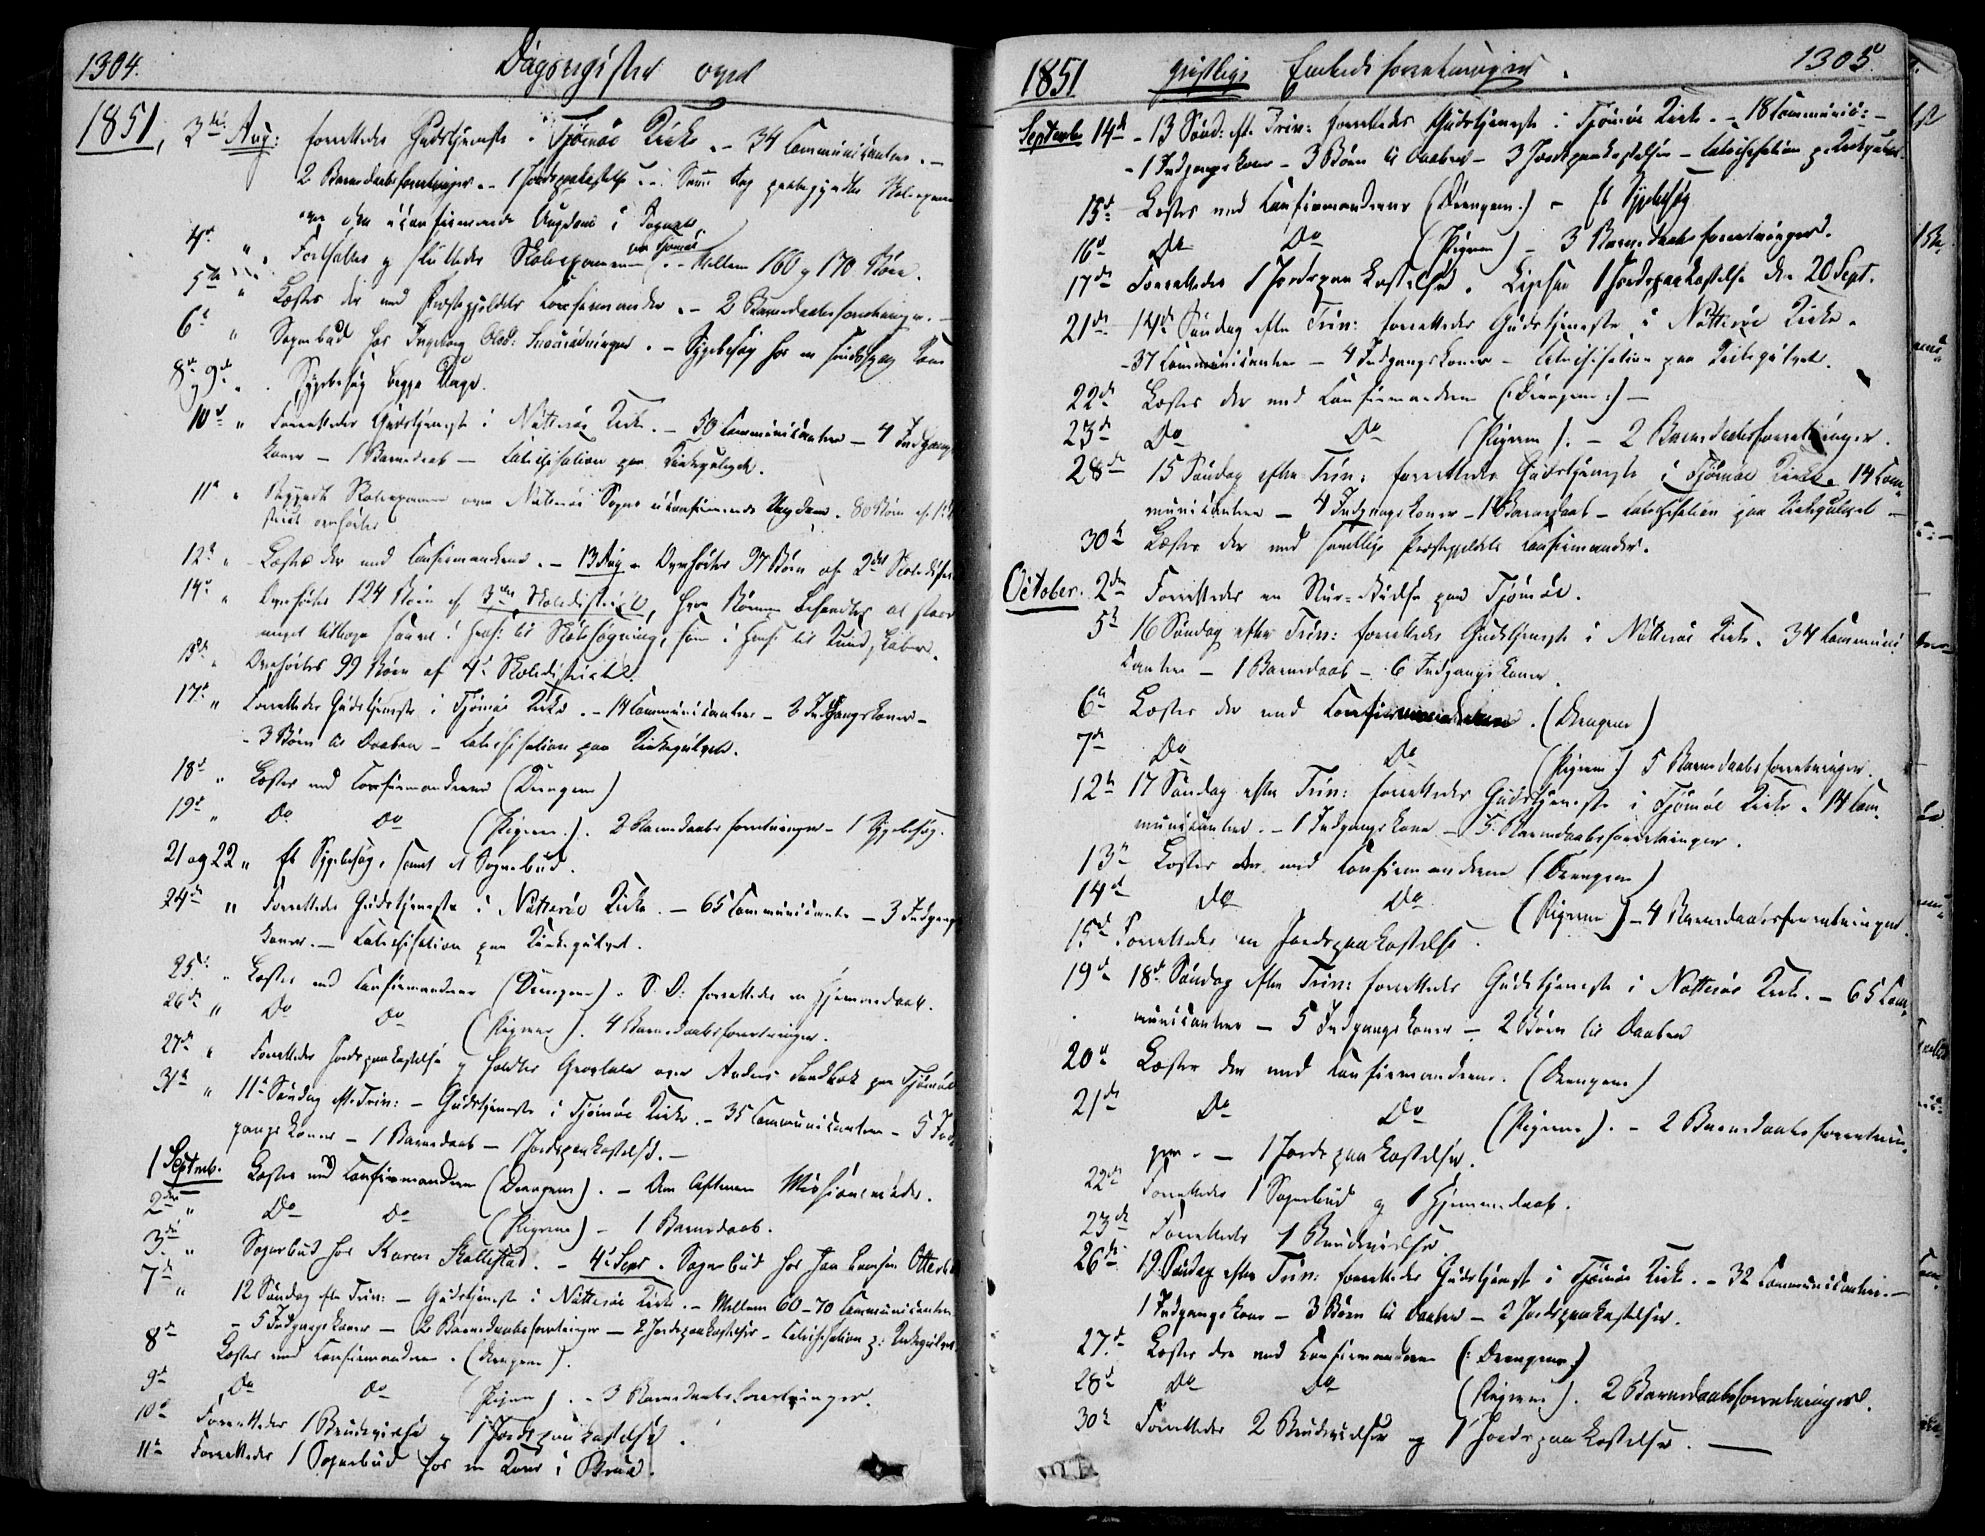 1304.
Dagsregister over
1851, 3die Aug: forrettedes Gudstjeneste i Tjömöe Kirke. – 34 Communicanter. –
2 Barnedaabsforretninger. – 1 Jordspaakastelse. – Samme Dag paabegyndtes Skoleexamen
over den uconfirmerede Ungdom i Sognet.
4de " Fortsattes og sluttedes Skoleexamen paa Tjömöe. – Mellem 160 og 170 Börn.
5te " Læstes der med Præstegjeldets Confirmander. – 2 Barnedaabsforretninger. –
6te " Sognebud hos Ingeborg – Sygebesög hos en
8de og 9de " Sygebesög begge Dage.
10de " Forrettedes Gudstjeneste i Nötteröe Kirke. – 50 Communicanter – 4 Indgangs
koner – 1 Barnedaab – Catechisation paa Kirkegulvet.
11te " Begyndte Skoleexamen over Nötteröe Sogns uconfirmerede Ungdom. 80 Börn af 1ste
District overhörtes
12te " Læstes der med Confirmanderne. – 13 Aug. Overhörtes 97 Börn af 2det Skoledistrict
14de " Overhörtes 124 Börn af 3die Skoledistrict,
meget tilbage saavel i Hens: til Skolesögning, som i Hens: til Kundskaber.
15de " Overhörtes 99 Börn af 4de Skoledistrict.
17de " Forrettedes Gudstjeneste i Tjömöe Kirke. – 14 Communicanter – 3 Indgangskoner –
– 3 Börn til Daaben – Catechisation paa Kirkegulvet.
18de " Læstes med Confirmanderne (Drengene)
19de " Do Do (Pigerne). 2 Barnedaabsforretninger – 1 Sygebesög.
21 og 22 " Et Sygebesög, samt et Sognebud.
24de " Forrettedes Gudstjeneste i Nötteröe Kirke. – 65 Communicanter – 3 Indgangs
koner. – Catechisation paa Kirkegulvet.
25de " Læstes med Confirmanderne (Drengene). S. D: forrettedes en Hjemmedaab.
26de " Do Do (Pigerne). 4 Barnedaabsforretninger.
27de " Forrettedes Jordspaakastelse og holdtes Gravtale over Anders Sandbek paa Tjömöe
31te " 11te Söndag eft. Trin: – Gudstjeneste i Tjömöe Kirke. – 35 Communicanter – 5 Ind
gangskoner – 1 Barnedaab – 1 Jordspaakastelse. –
1 Septmb. Læstes med Confirmanderne (Drengene). – Om Aftenen Missionsmöde.
2den " Do Do (Pigerne) – 1 Barnedaab.
3die " Sognebud hos Karen Skallestad. – 4de Sept. Sognebud hos
7de " 12 Söndag efter Trin: – Gudstjeneste i Nötteröe Kirke. – Mellem 60–70 Communicanter
– 5 Indgangskoner – 2 Barnedaabsforretninger – 2 Jordspaakastelser – Catechisation p: Kirkegulvet
8de Læstes med Confirmanderne. (Drengene).
9de Do Do (Pigerne). – 3 Barnedaabsforretninger.
10de Forrettedes 1 Brudevielse og 1 Jordspaakastelse.
11te Forrettedes 1 Sognebud hos en Kone i
1851 geistlige Embedsforretninger. 1305
Septembr 14de – 13 Sönd: eft. Trin: forrettedes Gudstjeneste i Tjömöe Kirke. – 18 Communic: –
– 1 Indgangskone – 3 Börn til Daaben – 3 Jordspaakastelser – Catechisation p. Kirkegulvet.
15de Læstes med Confirmanderne (Drengene.) – Et Sygebesög
16de Do Do (Pigerne) – 3 Barnedaabsforretninger.
17de Forrettedes 1 Jordspaakastelse. Ligesaa 1 Jordspaakastelse den 20 Sept.
21de 14de Söndag efter Trin: forrettedes Gudstjeneste i Nötteröe Kirke.
– 37 Communicanter – 4 Indgangskoner – Catechisation paa Kirkegulvet.
22de Læstes der med Confirmanderne (:Drengene:) –
23de Do Do (Pigerne). – 2 Barnedaabsforretninger.
28de 15 Söndag efter Trin: forrettedes Gudstjeneste i Tjömöe Kirke. 14 Com
municanter – 4 Indgangskoner – 1 Barnedaab – Catechisation paa Kirkegulvet –
30te Læstes der med samtlige Præstegjeldets Confirmander.
October. 2den Forrettedes en paa Tjömöe.
5te 16 Söndag efter Trin: forrettedes Gudstjeneste i Nötteröe Kirke. 34 Communi
canter – 1 Barnedaab – 6 Indgangskoner.
6te Læstes der med Confirmanderne. (Drengene)
7de Do Do (Pigerne) 5 Barnedaabsforretninger.
12te 17 Söndag efter Trin: forrettedes Gudstjeneste i Tjömöe Kirke. 14 Com
municanter. – 1 Indgangskone – 5 Barnedaabsforretninger.
13de Læstes der med Confirmanderne (Drengene)
14de Do Do (Pigerne) – 4 Barnedaabsforretninger.
15de Forrettedes en Jordspaakastelse.
19de 18de Söndag efter Trin: forrettedes Gudstjeneste i Nötteröe Kirke. – 65 Com
municanter – 5 Indgangskoner – 2 Börn til Daaben
20de Læstes der med Confirmanderne. (Drengene)
21de Do Do (Pigerne). – 2 Barnedaabsforretnin
ger. – 1 Jordspaakastelse.
22de Forrettedes 1 Sognebud og 1 Hjemmedaab.
23de Forrettedes 1 Brudevielse
26de 19. Söndag efter Trin: forrettedes Gudstjeneste i Tjömöe Kirke. – 32 Communicanter. –
1 Indgangskone – 3 Börn til Daaben – 2 Jordspaakastelser.
27de Læstes der med Confirmanderne (:Drengene:)
28de Do Do (Pigerne). 2 Barnedaabsforretninger.
30te Forrettedes 2 Brudevielser og 1 Jordspaakastelse. –